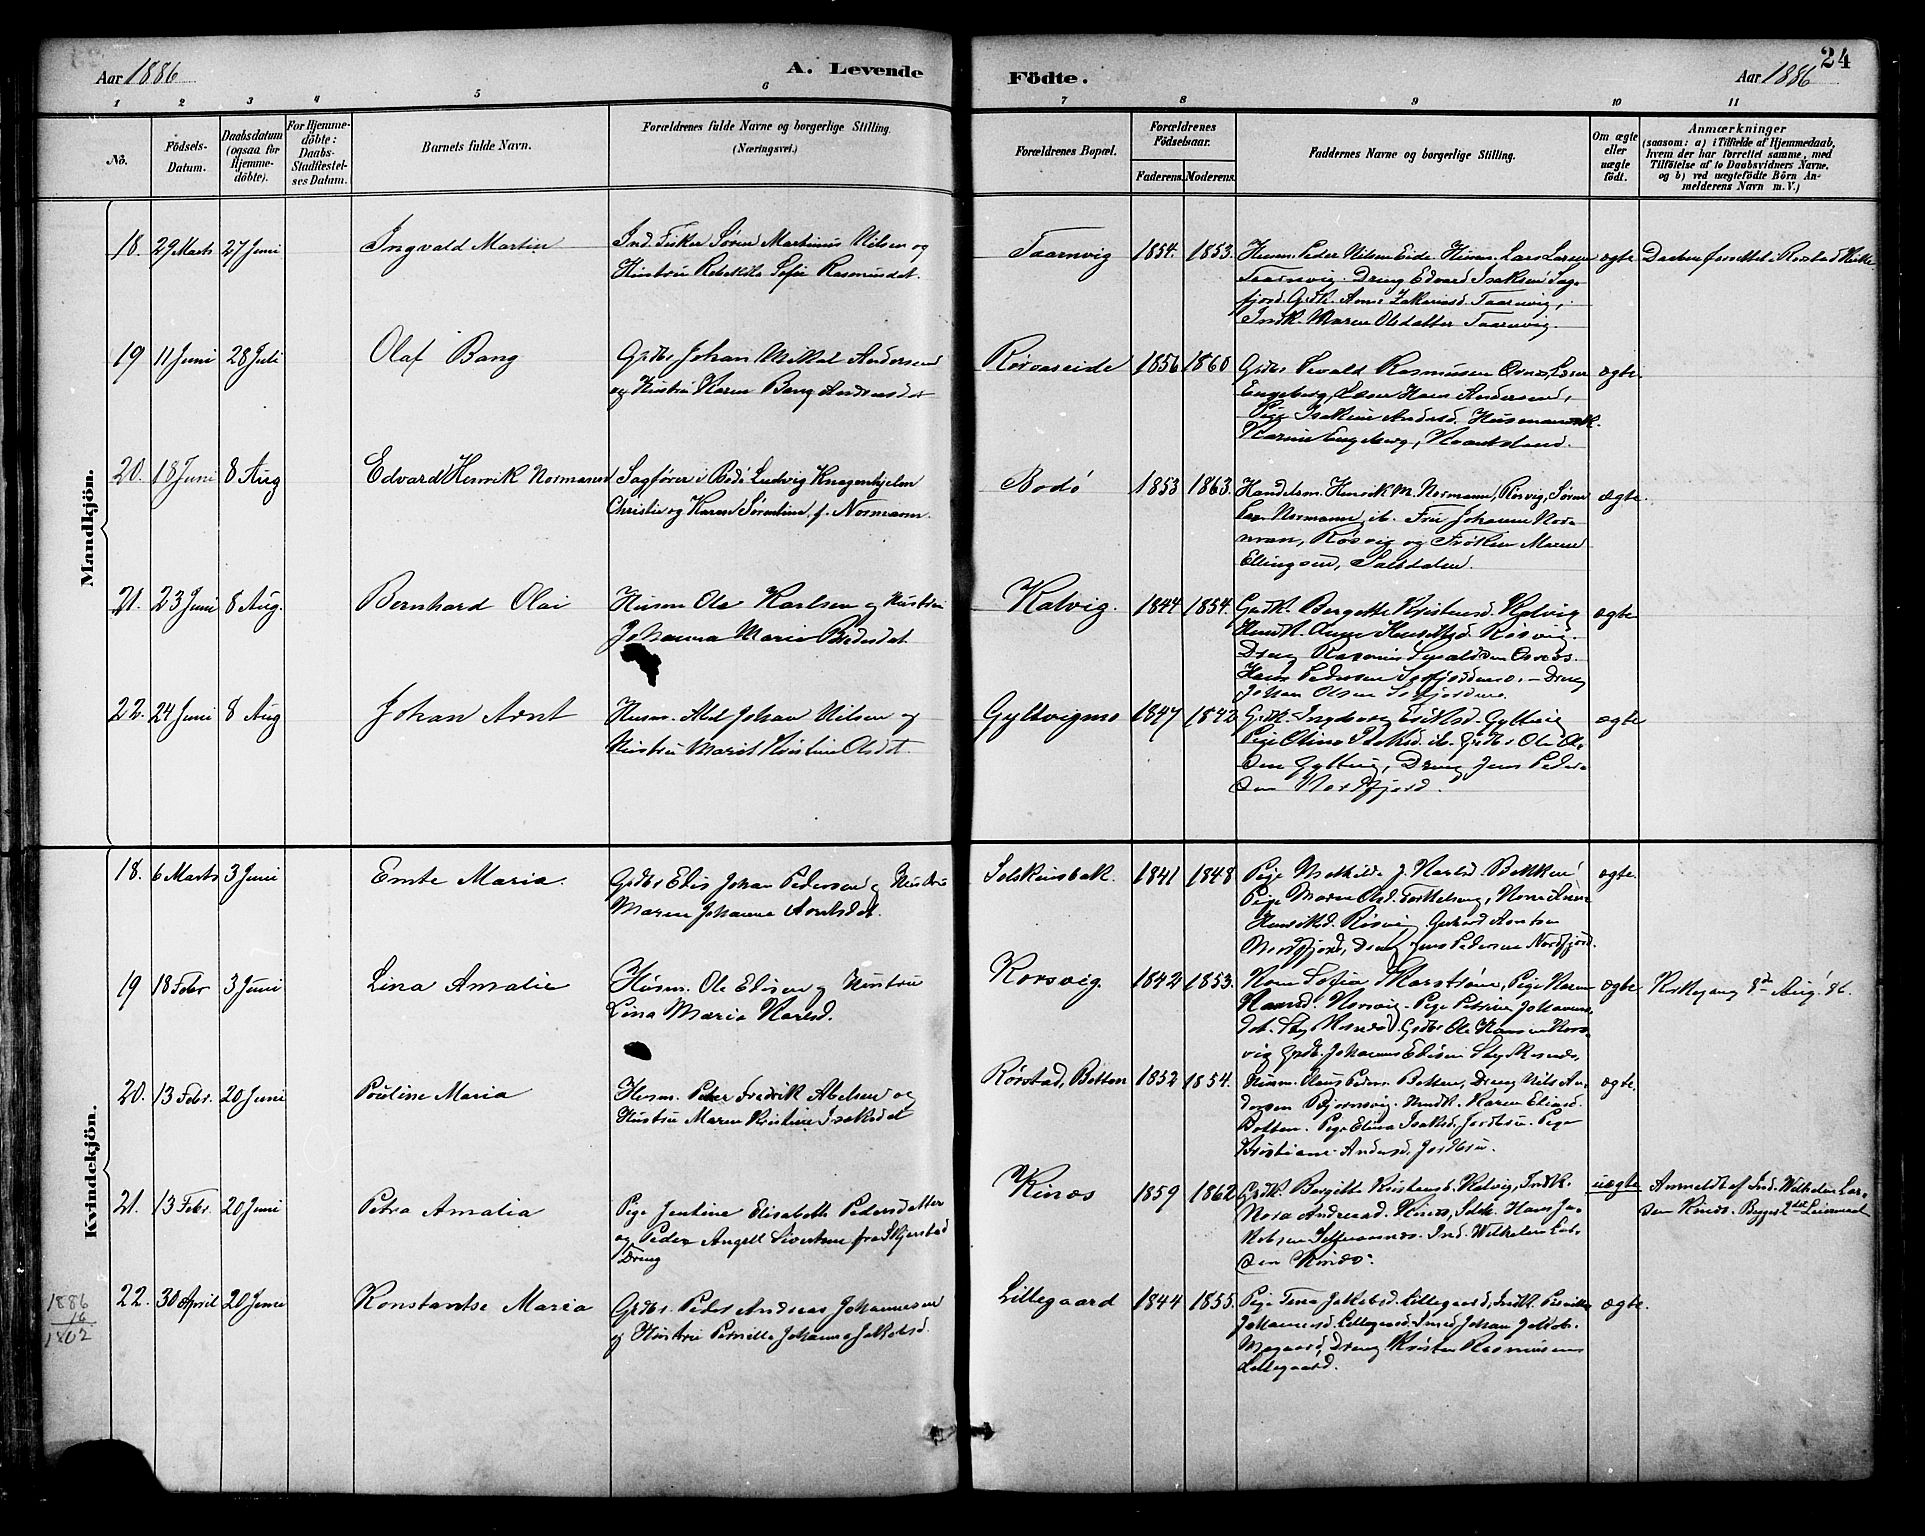 24
Aar 1886
A. Levende
Födte.
Aar 1886
1 2 3 4 5 6 7 8 9 10 11
Nô.
Födsels-
Datum.
Daabsdatum
(ogsaa for
Hjemme-
döbte).
For Hjemme-
döbte:
Daabs-
Stadfæstel-
ses Datum.
Barnets fulde Navn.
Forældrenes fulde Navne og borgerlige Stilling.
(Næringsvei.)
Forældrenes Bopæl.
Forældrenes
Födselsaar.
Faderens. Moderens.
Faddernes Navne og borgerlige Stilling.
Om ægte
eller
uægte
födt.
Anmærkninger
(saasom: a) i Tilfælde af Hjemmedaab,
hvem der har forrettet samme, med
Tilföielse af to Daabsvidners Navne.
og b) ved uægtefödte Börn An-
melderens Navn m. V.)
Mandkjön.
18. 29 Marts 27 Juni Ingvald Martin
Ind. Fisker Sören Martinus Nilsen og
Hustru Rebekka Sofie Rasmusdat.
Taarnvig 1854. 1853.
Husm. Peder Nilsen Eide. Husm. Lars Larsen
Taarnvig. Dreng Edvard Isaksen Sag-
fjord. Grdk. Anne Zakariasd. Taarnvig,
Indk. Maren Olsdatter Taarnvig.
ægte
Daaben forrettet i Rørstad Kirke
19 11 Juni 28 Juli Olaf Bang
Grdbr Johan Mikal Andersen
og Hustru Karen Bang Andersdat
Rörvaseide 1856 1860
Grdbr Sevald Rasmussen Lærer
Engeberg, Lærer Hans Andersen,
Pige Isakine Andersd. Husmandsk.
Karine Engeberg,
ægte
20. 18 Juni 8 Aug Edvard Henrik Normann
Sagförer i Bodö Ludvig Knagenhjelm
Christie og Karen Sörentine, f. Normann.
Bodö 1853 1863.
Handelsm. Henrik M. Normann, Rösvig, Sören
Normann ib. Fru Johanne Nor-
mann, Rösvig og Fröken Maren
Ellingsen, Saltdalen.
ægte.
21. 23 Juni 8 Aug. Bernhard Olai
Husm Ole Karlsen og Hustru
Johanna Maria Pedersdat
Kalvig. 1844 1854.
Grdk. Bergette Kristensd. Kalvig
Husk. Anne Henriksd. Rösvig.
Dreng Rasmus Sevaldsen
Hans Pedersen Sörfjorden. – Dreng
Johan Olsen Sörfjorden.
ægte
22. 24 Juni 8 Aug Johan Arnt
Husm. Abel Johan Nilsen og
Hustru Marit Kristine Olsdt.
Gyltvigmo 1847 1842
Grdk. Ingeborg Eriksd. Gyltvig
Pige Olina Isaksd. ib. Grdbr Ole Ol-
sen Gyltvig, Dreng Jens Peder-
sen Nordfjord.
ægte
Kvindekjön.
18. 6 Marts 3 Juni Emte Maria.
Grdbr Elis Johan Pedersen og Hustru
Maren Johanna Arntsdat.
Solskinsbak. 1841 1848
Pige Mathilde J. Karlsd. Bakken
Pige Maren Olsd. Kone Anne
Henriksd. Rösvig. Gerhard Arntsen
Nordfjord, Dreng Jens Pedersen Nordfjord.
ægte.
19 18 Febr 3 Juni Lina Amalie
Husm. Ole Elisen og Hustru
Lina Maria Karlsd.
Korsvig. 1842 1853.
Kone Sofia Pige Karen
Hansd. Korsvig. Pige Petrine Johannes-
dat. Grdbr Ole Hansen Kors-
vig Grdb. Johannes Elisen
ægte
Kirkegang 8de Aug. 86.
20. 13 Febr. 20 Juni Pauline Maria
Husm. Peter Fredrik Abelsen og
Hustru Maren Kristine Isaksdat
Rörstad, Botten 1852 1854.
Husm. Claus Peders. Botten, Dreng Nils An-
dersen Bjørnsvig. Husk. Karen Eliasd.
Botten. Pige Elina Isaksd. Jordbru. Pige
Kristiane Andersd. Jordbru.
ægte.
21. 13 Febr. 20 Juni Petra Amalia
Pige Jentine Elisabeth Pedersdatter
og Peder Angell Sivertsen fra Skjerstad
Dreng
Kinæs 1859 1862
Grdk. Bergitte Kristensd. Kalvig, Indk.
Nora Andreasd. Kinæs, Selv. Hans Ja-
kobsen Ind. Wilhelm Lar-
sen Kinæs.
uægte
Anmeldt af Ind. Wilhelm Lar-
sen Kinæs. Begges 1ste Leiermaal
22. 30 April 20 Juni Konstantse Maria
Grdbr. Peder Andreas Johannesen
og Hustru Pernille Johanna Jakobsd.
Lillegaard 1844 1855.
Pige Tena Jakobsd. Lillegaard, Indk. Pernille
Johannesd. Lillegaard. Smed Johan Jakob.
Megaard, Dreng Kristen Rasmussen
Lillegaard.
ægte.
1886
16
1802